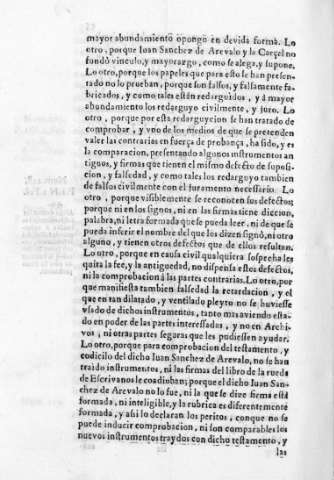 mayor abundamiento opongo en devida forma. Lo
otro, porque Iuan Sanchez de Arevalo y la Carçel no
fundò vinculo, y mayorazgo, como se alega, y supone.
Lo otro, porque los papeles que para esto se han presen-
tado no lo prueban, porque son falsos, y falsamente fa-
bricados, y como tales estàn redarguidos, y à mayor
abundamiento los redarguyo civilmente, y juro. Lo
otro, porque por esta redarguycion se han tratado de
comprobar, y vno de los medios de que se pretenden
valer las contrarias en fuerça de probança, ha sido, y es
la comparacion, presentando algunos instrumentos an
tiguos, y firmas que tienen el mismo defecto de suposi-
cion, y falsedad, y como tales los redarguyo tambien
de falsos civilmente con el juramento necessario. Lo
otro, porque visiblemente se reconocen sus defectos
porque ni en los signos, ni en las firmas tiene diccion,
palabra, ni letra formada que se pueda leer, ni de que se
pueda inferir el nombre del que los dizen signò, ni otro
alguno, y tienen otros defectos que de ellos resultan.
Lo otro, porque en causa civil qualquiera sospecha les
quita la fee, y la antiguedad, no dispensa estos defectos,
ni la comprobacion à las partes contrarias. Lo otro, por
que manifiesta tambien falsedad la retardacion, y el
que en tan dilatado, y ventilado pleyto no se huviesse
vsado de dichos instrumentos, tanto mas aviendo esta-
do en poder de las partes interessadas, y no en Archi-
vos, ni otras partes seguras que les pudiessen ayudar.
Lo otro, porque para comprobacion del testamento, y
codicilo del dicho Iuan Sanchez de Arevalo, no se han
traido instrumentos, ni las firmas del libro de la rueda
de Escrivanos le coadiuban; porque el dicho Iuan San-
chez de Arevalo no lo fue, ni la que se dize firma està
formada, ni inteligible, y la rubrica es diferentemente
formada, y assi lo declaran los peritos, conque no se
puede inducir comprobacion, ni son comparables los
nuevos instrumentos traydos con dicho testamento, y
las